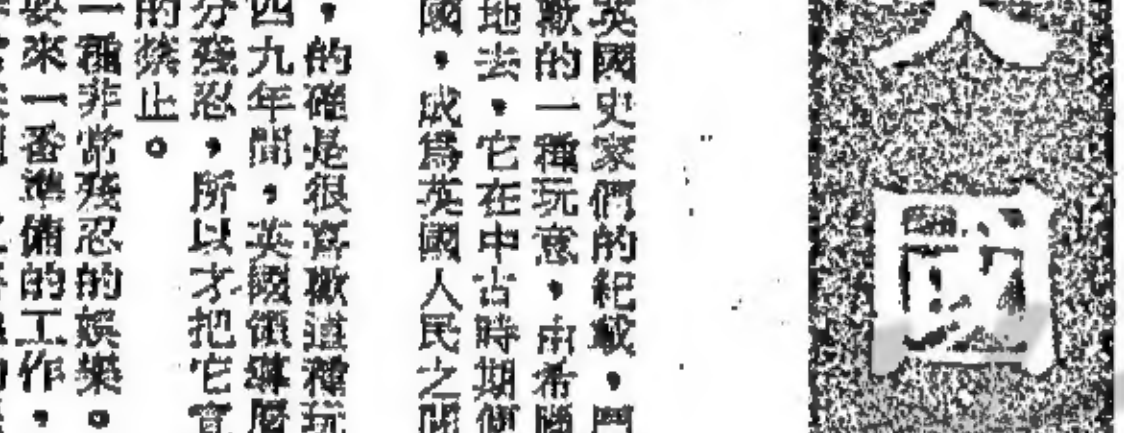 國
英國史家們的紀載，鬥
歡的一種玩意，由希臘
地去，它在中古時期便
國，成爲英國人民之間
，的確是很喜歡這種玩
四九年間，英國
分殘忍，所以才把它宣
的禁止。
一種非常殘忍的娛樂。
要來一番準備的工作，